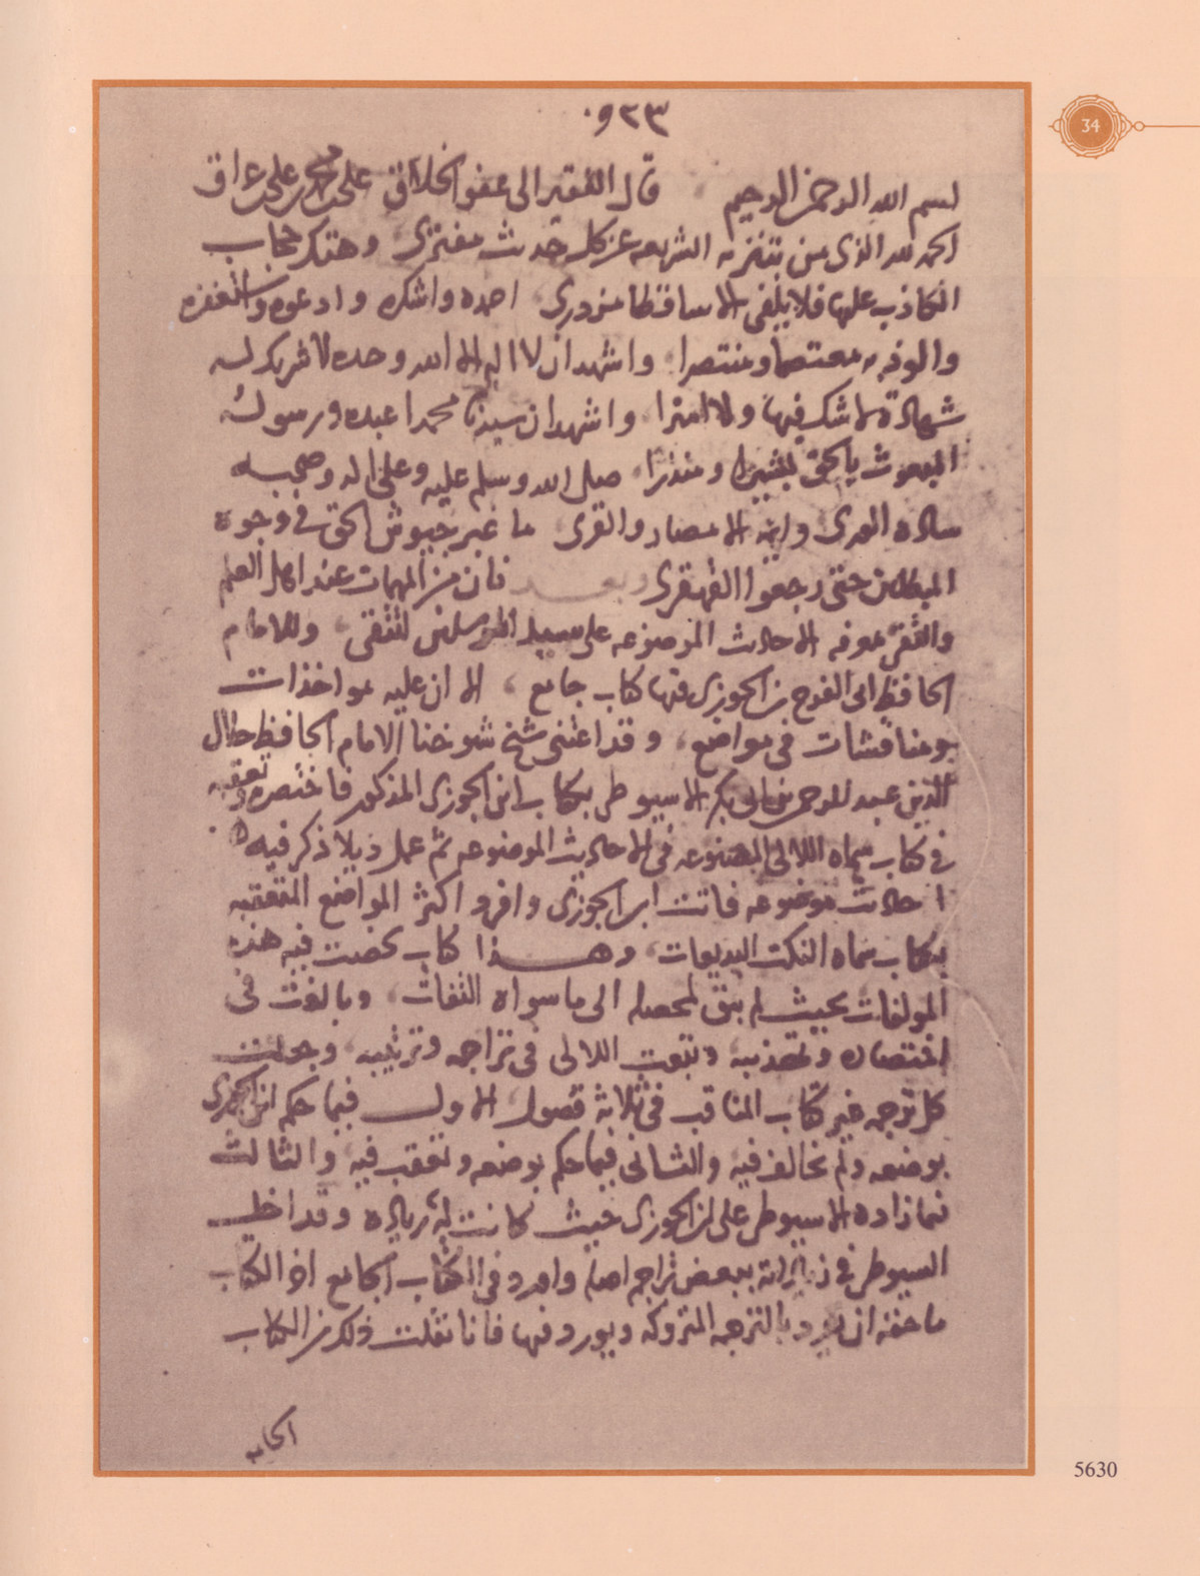 ٩٢٣
34
بسم الله الرحمن الرحيم قال الفقير الى عفو الخلاق على بن محمد بن على بن عراق
الحمد لله الذى من بتنزيه الشريعه عن كل حديث مفترى وهتك حجاب
الكاذب عليها فلا يلفى الا ساقطا مزدرى احمده واشكره وادعوه واستغفره
والوذ به معتصما ومنتصرا واشهد ان لا اله الا الله وحده لا شريك له
شهادة لا شك فيها ولا امترا واشهد ان سيدنا محمدا عبده ورسوله
المبعوث بالحق بشيرا ومنذرا صلى الله وسلم عليه وعلى اله وصحبه
ساده الورى وايمه الامصار والقرى ما غبر جيوش الحق فى وجوه
المبطلين حتى رجعوا القهقرى وبعد فان من المهمات عند اهل العلم
والتقى معرفه الاحاديث الموضوعه على سيد المرسلين لتتقى وللامام
الحافظ ابى الفرج بن الجوزى فيها كتاب جامع الا ان عليه مواخذات
ومناقشات فى مواضع وقد اعتنى شيخ شيوخنا الامام الحافظ جلال
الدين عبد الرحمن بن ابى بكر الاسيوطى بكتاب ابن الجوزى المذكور فاختصره وتعقبه
فى كتاب سماه اللالى المصنوعه فى الاحاديث الموضوعه ثم عمل ذيلا ذكر فيه
احاديث موضوعه فاتت ابن الجوزى وافرد اكثر المواضع المتعقبه
بكتاب سماه النكت البديعات وهذا كتاب لخصت فيه هذه
المولفات بحيث لم يبق لمحصله الى ما سواه التفات وبالغت فى
اختصاره وتهذيبه وتبعت اللالى فى تراجمه وترتيبه وجعلت
كل ترجمه غير كتاب المناقب فى ثلاثة فصول الاول فيما حكم ابن الجوزى
بوضعه ولم يخالف فيه والثانى فيما حكم بوضعه وتعقب فيه والثالث
فيما زاده الاسيوطى على ابن الجوزى حيث كانت له زياده وقد اخل
السيوطى فى زياداته ببعض تراجم اصله واورد فى الكتاب الجامع اخر الكتاب
ما حقه ان يورد بالترجمه المتروكه ويورد فيها فانا نقلت ذلك من الكتاب
5630